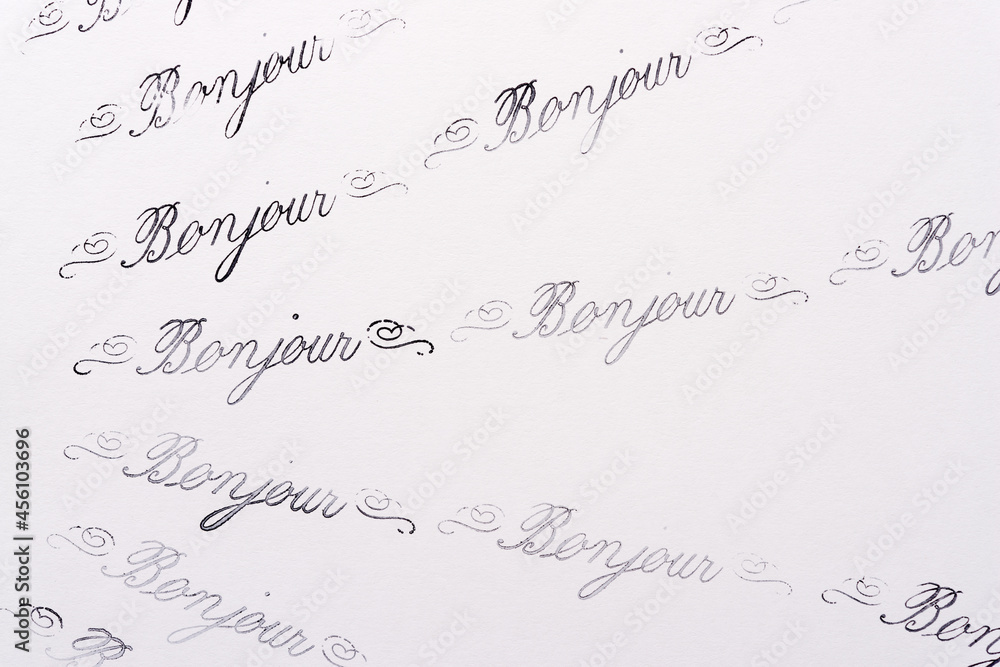 Bo
Bonjour
Bonjour
Bonjour
Bon
Bonjour
Bonjour
Bonjour
Bonjour
Bonjour
Bon
Bo
Adobe Stock | #456103696